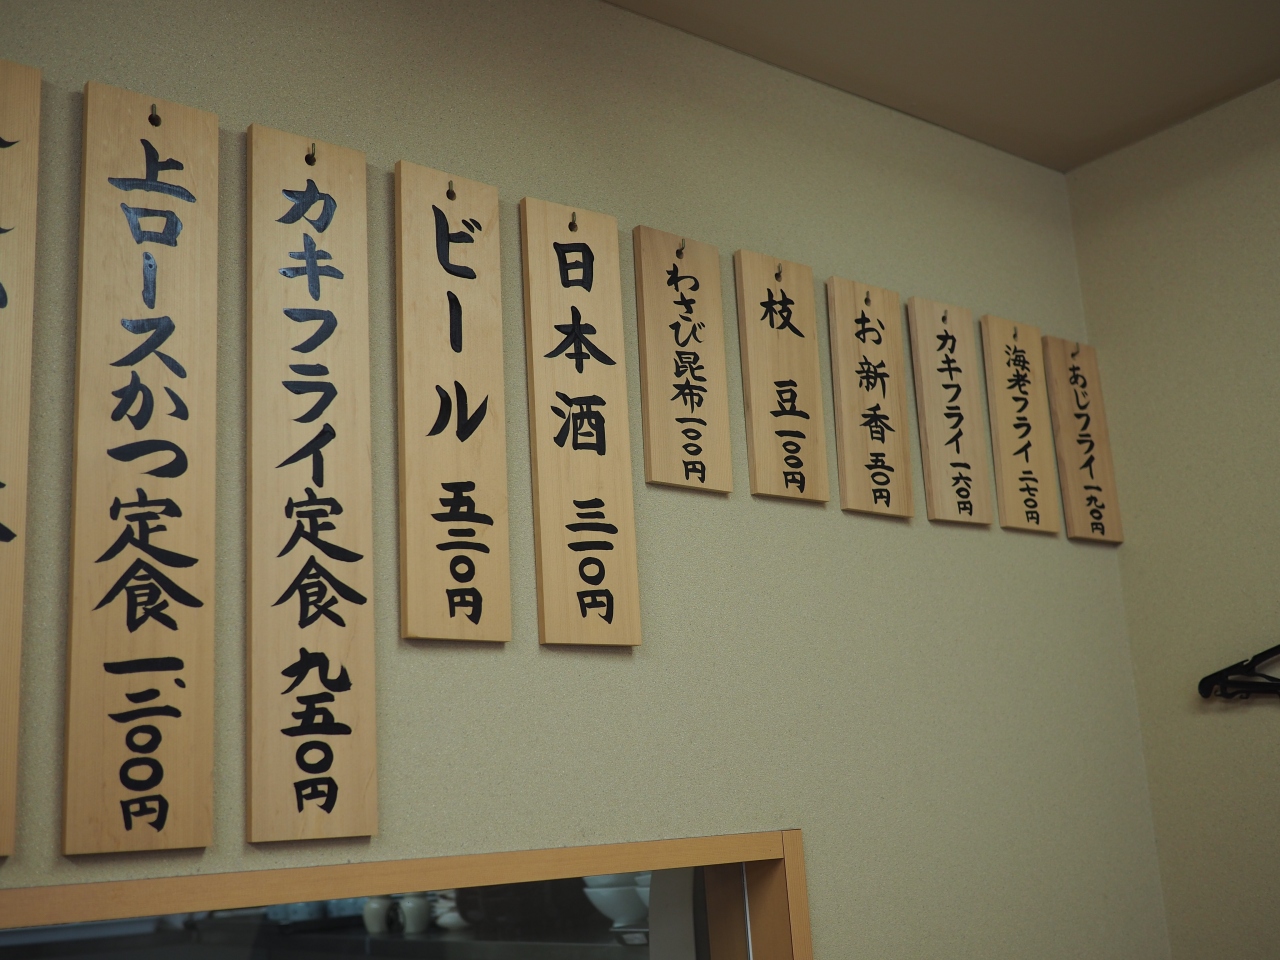 上ロースかつ定食 一、二〇〇円
カキフライ定食 九五〇円
ビール 五二〇円
日本酒 三一〇円
わさび昆布 一〇〇円
枝豆 一〇〇円
お新香 五〇円
カキフライ 一六〇円
海老フライ 二七〇円
あじフライ 一九〇円